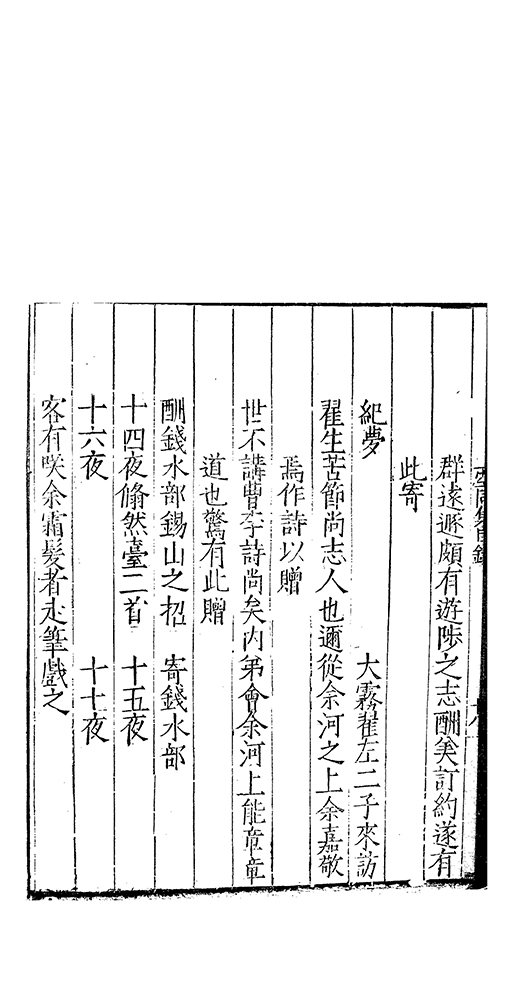 空同集目録
群遠遯頗有遊陟之志酬美訂約遂有
此寄
紀夢　大霧翟左二子來訪
翟生苦節尚志人也邇從余河之上余嘉敬
焉作詩以贈
世不講曹李詩尚矣内弟會余河上能章章
道也驚有此贈
酬錢水部錫山之招　寄錢水部
十四夜翛然臺二首　十五夜
十六夜　十七夜
客有咲余霜髮者走筆戲之